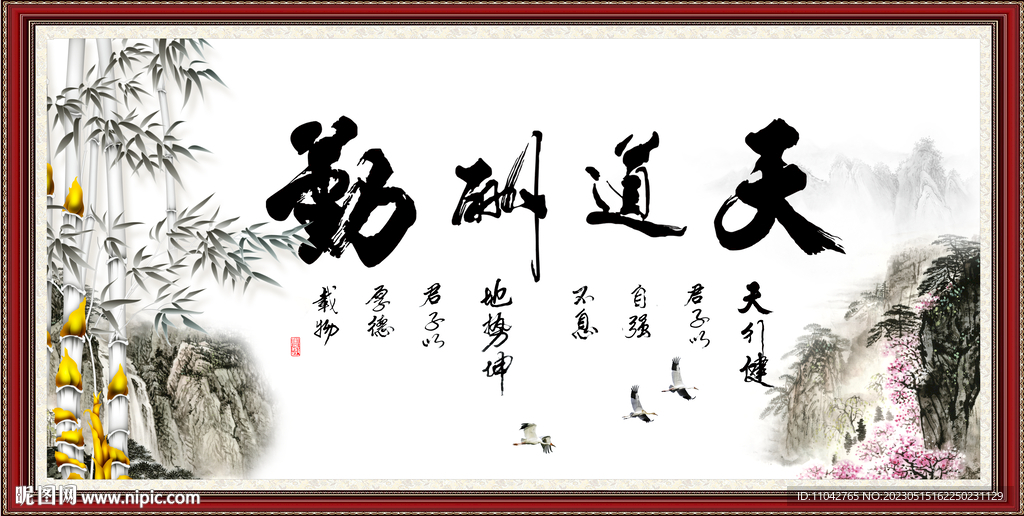 天道酬勤
天行健
君子以
自强
不息
地势坤
君子以
厚德
载物
昵图网 www.nipic.com
ID:11042765 NO:20230515162250231129